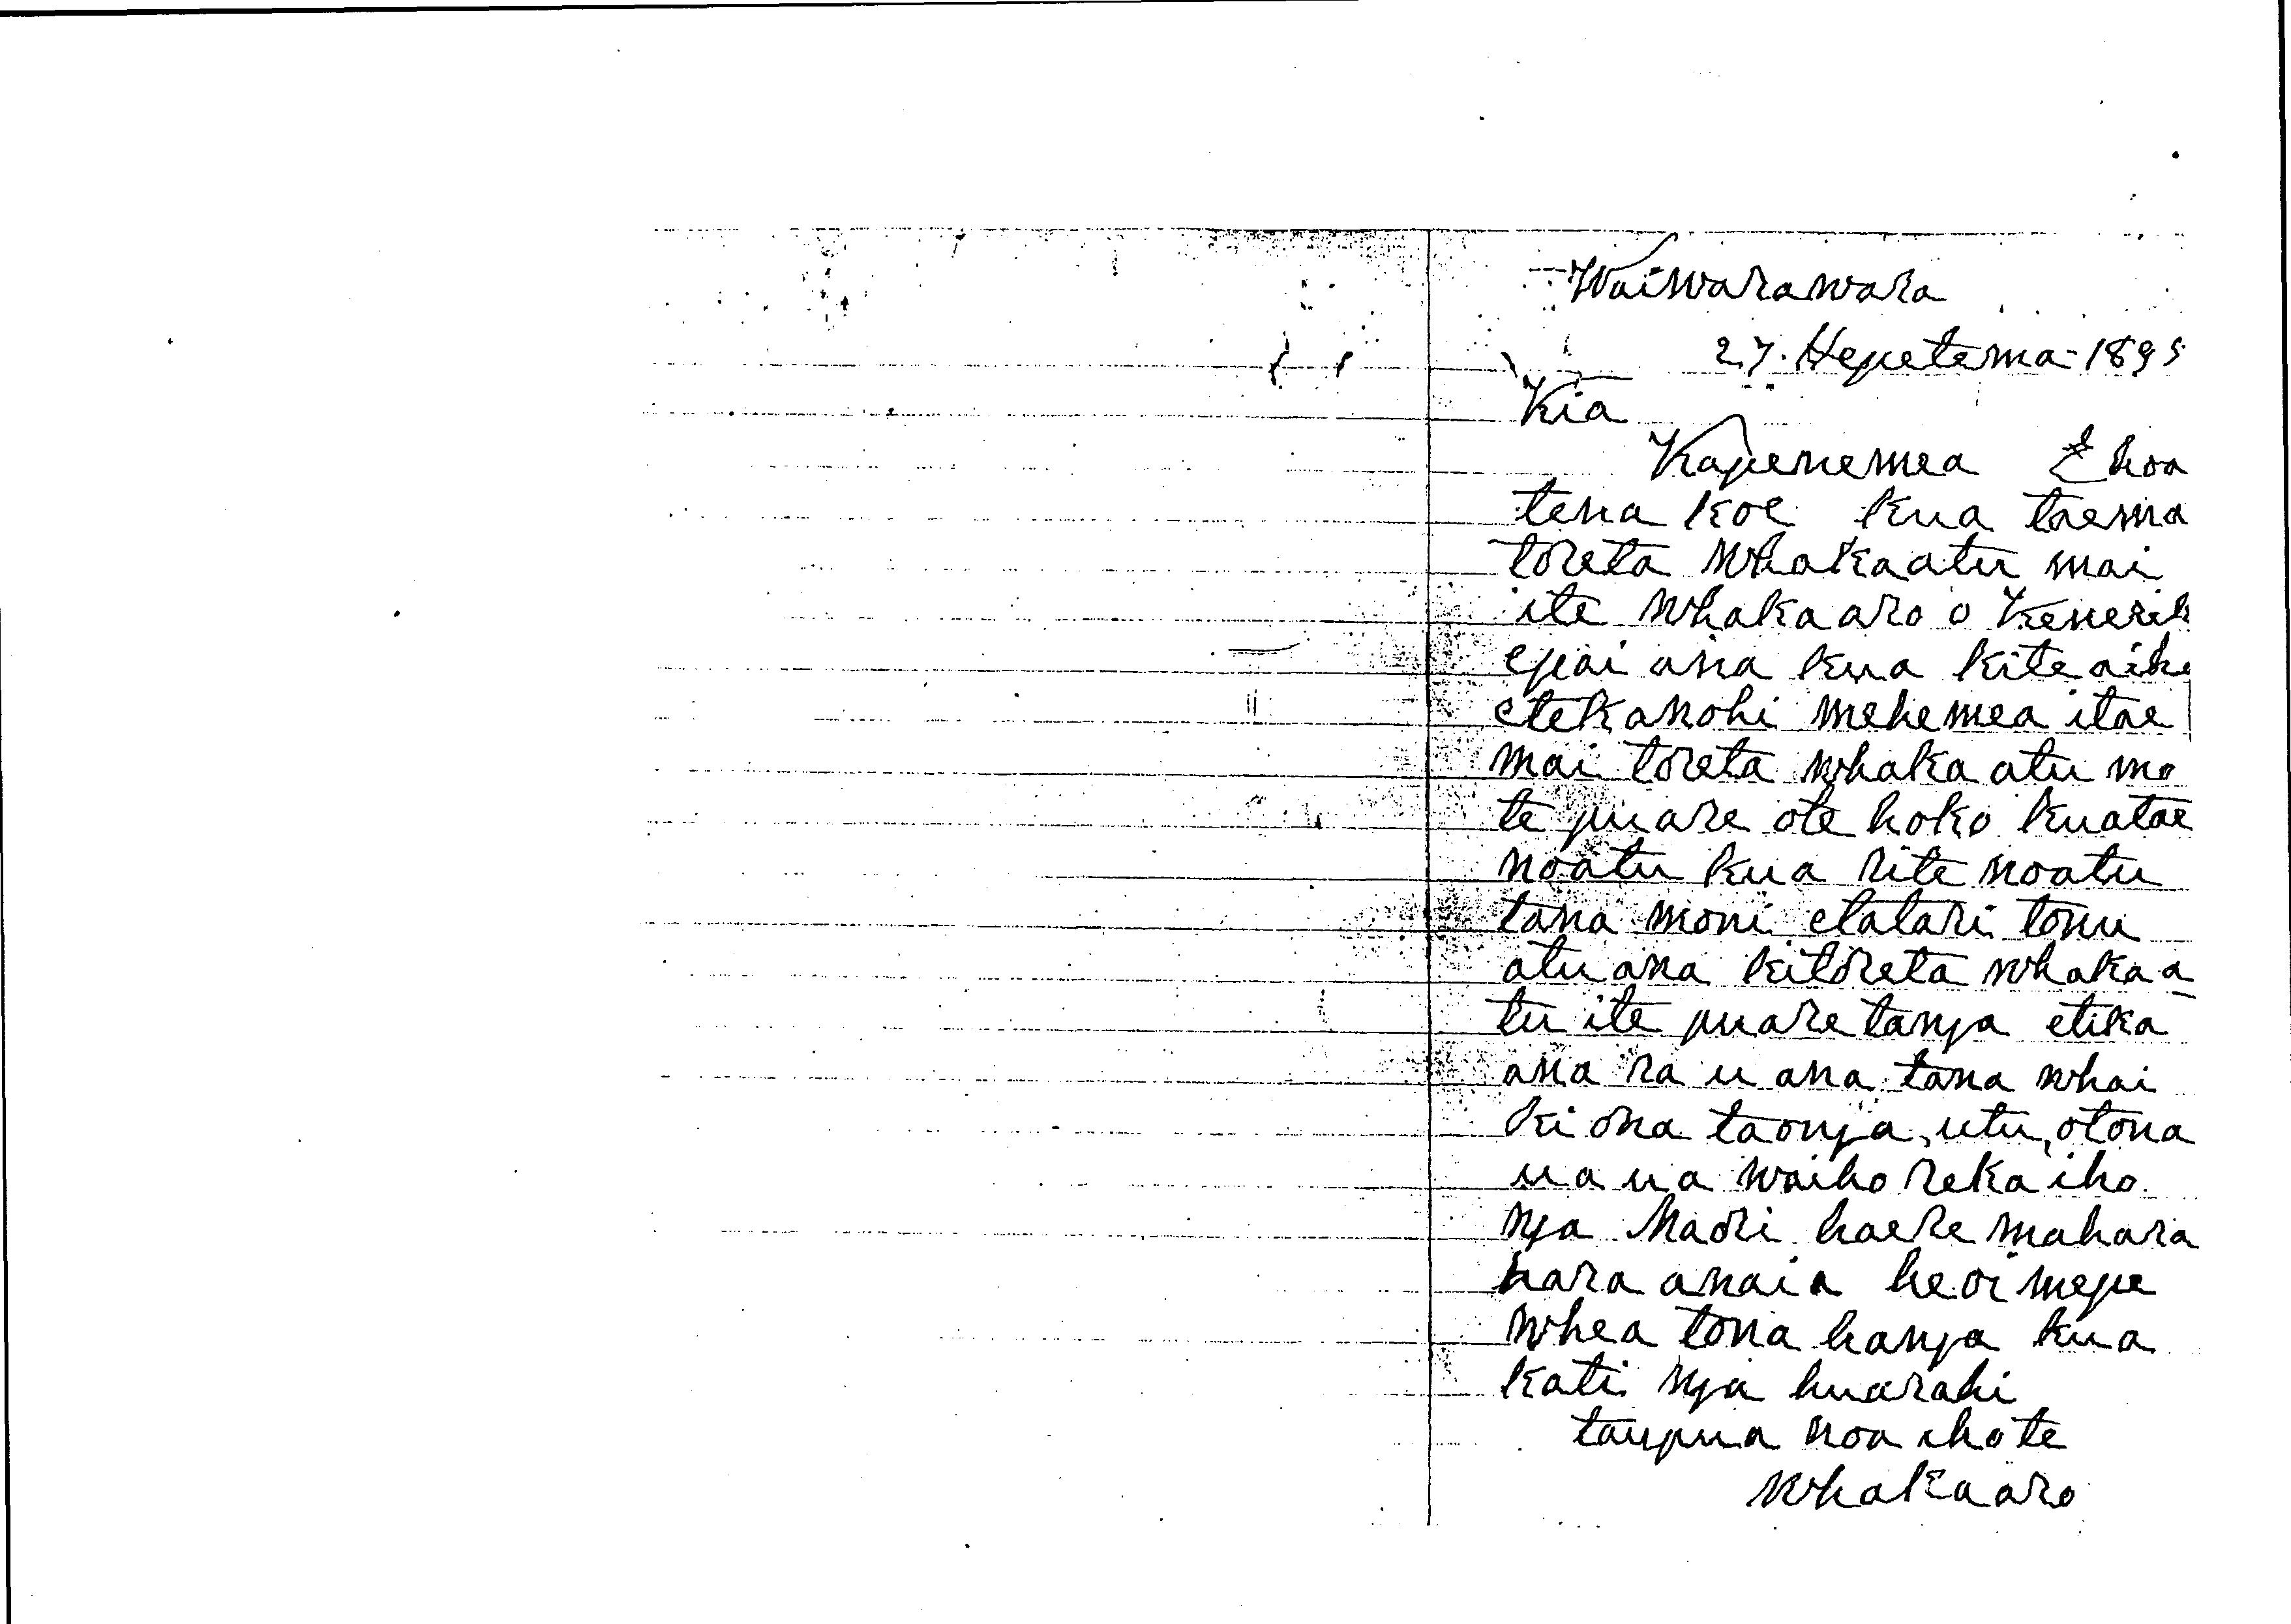 Waiwarawara
27. Hepetema 1895
Kia
Kapenemea E hoa
tena koe kua taema
toreta whakaatu mai
ite whakaaro o Kenerik
epai ana kua kite aiho
etekanohi mehemea itae
mai toreta whakaatu mo
te puare ote hoko kuatae
noatu kua rite noatu
tana moni etatari tonu
atu ana kitoreta whakaa
tu ite puaretanga etika
ana ra u ana tana whai
ki ona taonga, utu, otona
ua ua waiho reka iho
nga Maori haere mahara
hara anaia heoi mepe
whea tona hanga kua
kati nga huarahi
taupua noa ihote
whakaaro